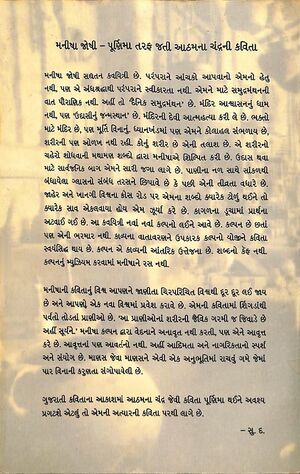 મનીષા જોષી – પૂર્ણિમા તરફ જતી આઠમના ચંદ્રની કવિતા
મનીષા જોષી સદ્યતન કવયિત્રી છે. પરંપરાને આંચકો આપવાનો એમનો હેતુ
નથી, પણ એ અંધશ્રદ્ધાથી પરંપરાને સ્વીકારતા નથી. એમને માટે સમુદ્રમંથનની
વાત પૌરાણિક નથી. અહીં તો 'દૈનિક સમુદ્રમંથન' છે. મંદિર આશ્વાસનનું ધામ
નથી, પણ 'ઉદાસીનું જન્મસ્થાન' છે. મંદિરની દેવી આત્મહત્યા કરી લે છે. ભક્તો
માટે મંદિર છે, પણ મૂર્તિ વિનાનું, ધ્યાનખંડમાં પણ એમને કોલાહલ સંભળાય છે,
શરીરની પણ ઓળખ નથી રહી. કોનું શરીર છે એની તલાશ છે. એ શરીરનો
ચહેરો શોધવાની મથામણ શબ્દો દ્વારા મનીષાએ શિલ્પિત કરી છે. ઉદાસ થવા
માટે સાર્વજનિક બાગ એમને સારી જગા લાગે છે. પાણીના નળ સાથે સાંકળથી
બંધાયેલા ગ્લાસનો સંબંધ તરસને છિપાવે છે કે પછી એની તીવ્રતા વધારે છે.
જાહેર અને ખાનગી વિશ્વના ક્રોસ રોડ પર એમના શબ્દો ક્યારેક ટોળું થઈને તો
ક્યારેક સાવ એકલવાયા હોય એમ ઝૂર્યા કરે છે. કાગળના ડૂચામાં પ્રાર્થના
અટવાઈ ગઈ છે. આ કવયિત્રી નવાં નવાં કલ્પનો લઈને આવે છે. કલ્પન છે છતાં
પણ એની ભરમાર નથી. કાવ્યના વાતાવરણને ઉપકારક કલ્પનો યોજીને કવિતા
સ્વયંસિદ્ધ થાય છે. કલ્પન એ કાવ્યની આંતરિક ઉત્તેજના છે. શબ્દનો કેફ નથી.
કલ્પનનું મ્યુઝિયમ કરવામાં મનીષાને રસ નથી.
મનીષાની કવિતાનું વિશ્વ આપણને જાણીતા ચિરપરિચિત વિશ્વથી દૂર દૂર લઈ જાય
છે અને આપણે એક નવા વિશ્વમાં પ્રવેશ કરાવે છે. એમની કવિતામાં શિંગડાંથી
પર્વતો તોડતાં પ્રાણીઓ છે. 'આ પ્રાણીઓનાં શરીરની જૈવિક ગરમી જ જિવાડે છે
અહીં સૂર્યને.' મનીષા કલ્પન દ્વારા વેદનાને અનાવૃત નથી કરતી, પણ એને આવૃત્ત
કરે છે. આવૃત્તનાં પણ આવર્તનો નથી. અહીં આદિમતા અને નાગરિકતાનો સ્પર્શ
અને સંયોગ છે. માણસ જેવા માણસને એવી એક અનુભૂતિમાં રાચવું ગમે જેમાં
પાર વિનાની કરુણતા સંગોપાયેલી છે.
ગુજરાતી કવિતાના આકાશમાં આઠમના ચંદ્ર જેવી કવિતા પૂર્ણિમા થઈને અવશ્ય
પ્રગટશે એટલું તો એમની અત્યારની કવિતા પરથી લાગે છે.
– સુ. દ.